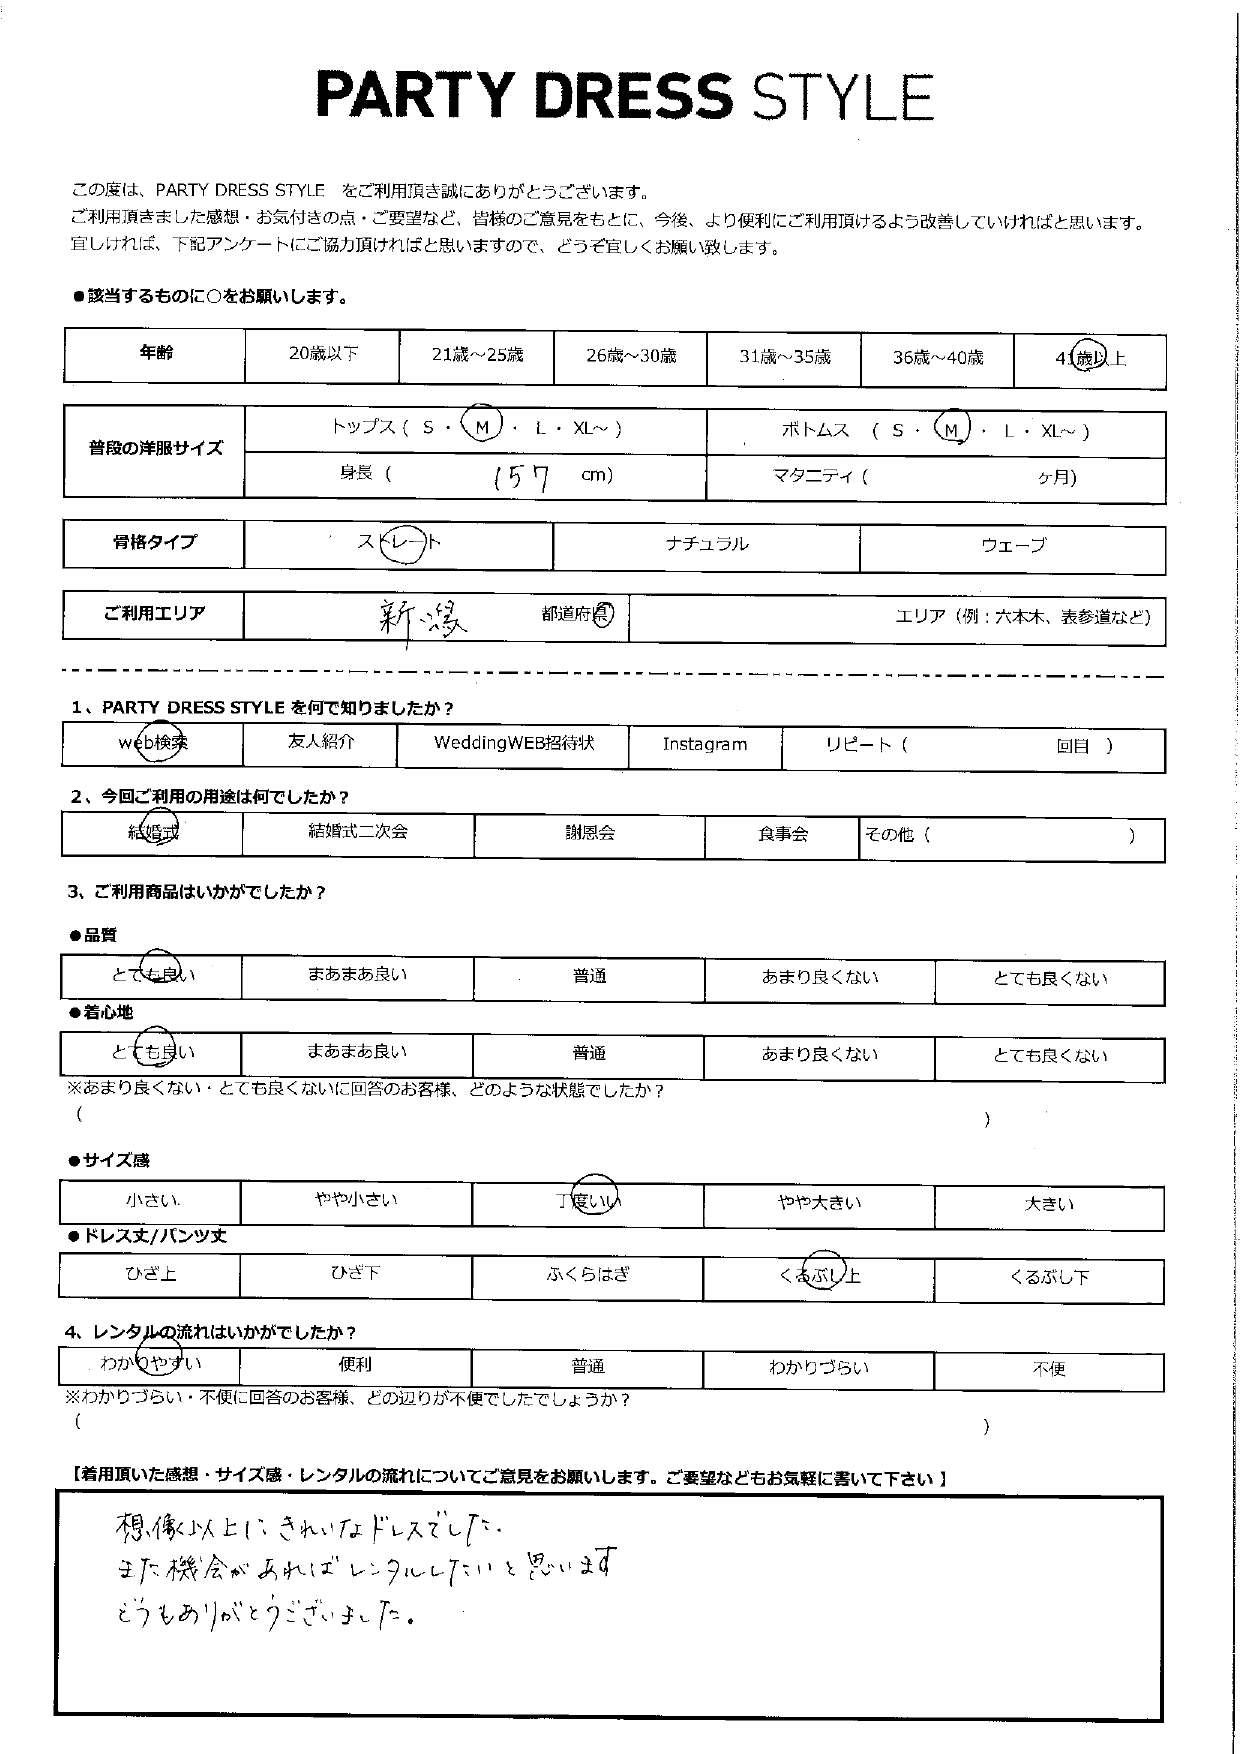 PARTY DRESS STYLE
この度は、PARTY DRESS STYLE をご利用頂き誠にありがとうございます。
ご利用頂きました感想・お気付きの点・ご要望など、皆様のご意見をもとに、今後、より便利にご利用頂けるよう改善していければと思います。
宜しければ、下記アンケートにご協力頂ければと思いますので、どうぞ宜しくお願い致します。
●該当するものに○をお願いします。
年齢 20歳以下 21歳～25歳 26歳～30歳 31歳～35歳 36歳～40歳 41歳以上
普段の洋服サイズ トップス ( S ・ M ・ L ・ XL～ ) ボトムス ( S ・ M ・ L ・ XL～ )
身長 ( 157 cm) マタニティ ( ヶ月)
骨格タイプ ストレート ナチュラル ウェーブ
ご利用エリア 新潟 都道府県 エリア (例：六本木、表参道など)
1、PARTY DRESS STYLE を何で知りましたか？
web検索 友人紹介 WeddingWEB招待状 Instagram リピート ( 回目 )
2、今回ご利用の用途は何でしたか？
結婚式 結婚式二次会 謝恩会 食事会 その他 ( )
3、ご利用商品はいかがでしたか？
●品質
とても良い まあまあ良い 普通 あまり良くない とても良くない
●着心地
とても良い まあまあ良い 普通 あまり良くない とても良くない
※あまり良くない・とても良くないに回答のお客様、どのような状態でしたか？
( )
●サイズ感
小さい やや小さい 丁度いい やや大きい 大きい
●ドレス丈/パンツ丈
ひざ上 ひざ下 ふくらはぎ くるぶし上 くるぶし下
4、レンタルの流れはいかがでしたか？
わかりやすい 便利 普通 わかりづらい 不便
※わかりづらい・不便に回答のお客様、どの辺りが不便でしたでしょうか？
( )
【着用頂いた感想・サイズ感・レンタルの流れについてご意見をお願いします。ご要望などもお気軽に書いて下さい】
想像以上にきれいなドレスでした。
また機会があればレンタルしたいと思います
どうもありがとうございました。